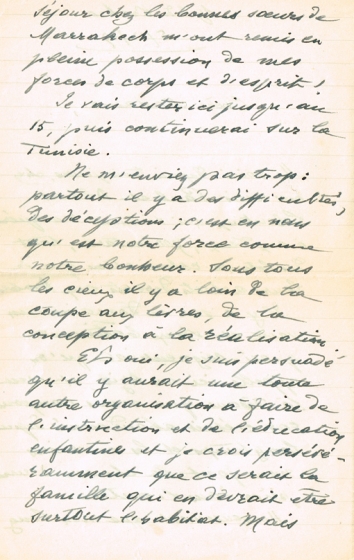 séjour chez les bonnes sœurs de
Marrakech m'ont remis en
pleine possession de mes
forces de corps et d'esprit !
Je vais rester ici jusqu'au
15, puis continuerai sur la
Tunisie.
Ne m'enviez pas trop :
partout il y a des difficultés,
des déceptions ; c'est en nous
qu'est notre force comme
notre bonheur. Sous tous
les cieux il y a loin de la
coupe aux lèvres, de la
conception à la réalisation
Eh oui, je suis persuadé
qu'il y aurait une toute
autre organisation à faire de
l'instruction et de l'éducation
enfantines et je crois persévé-
ramment que ce serait la
famille qui en devrait être
surtout l'habitat. Mais